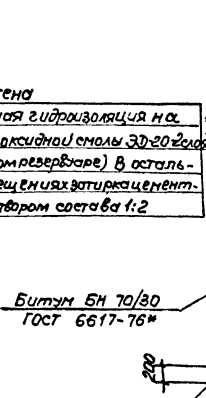 ена
ная гидроизоляция на
оксидной смолы ЭД-20-2слоя
ом резервуаре) В осталь-
ещениях затирка цемент-
твором состава 1:2
Битум БН 70/30
ГОСТ 6617-76*
200